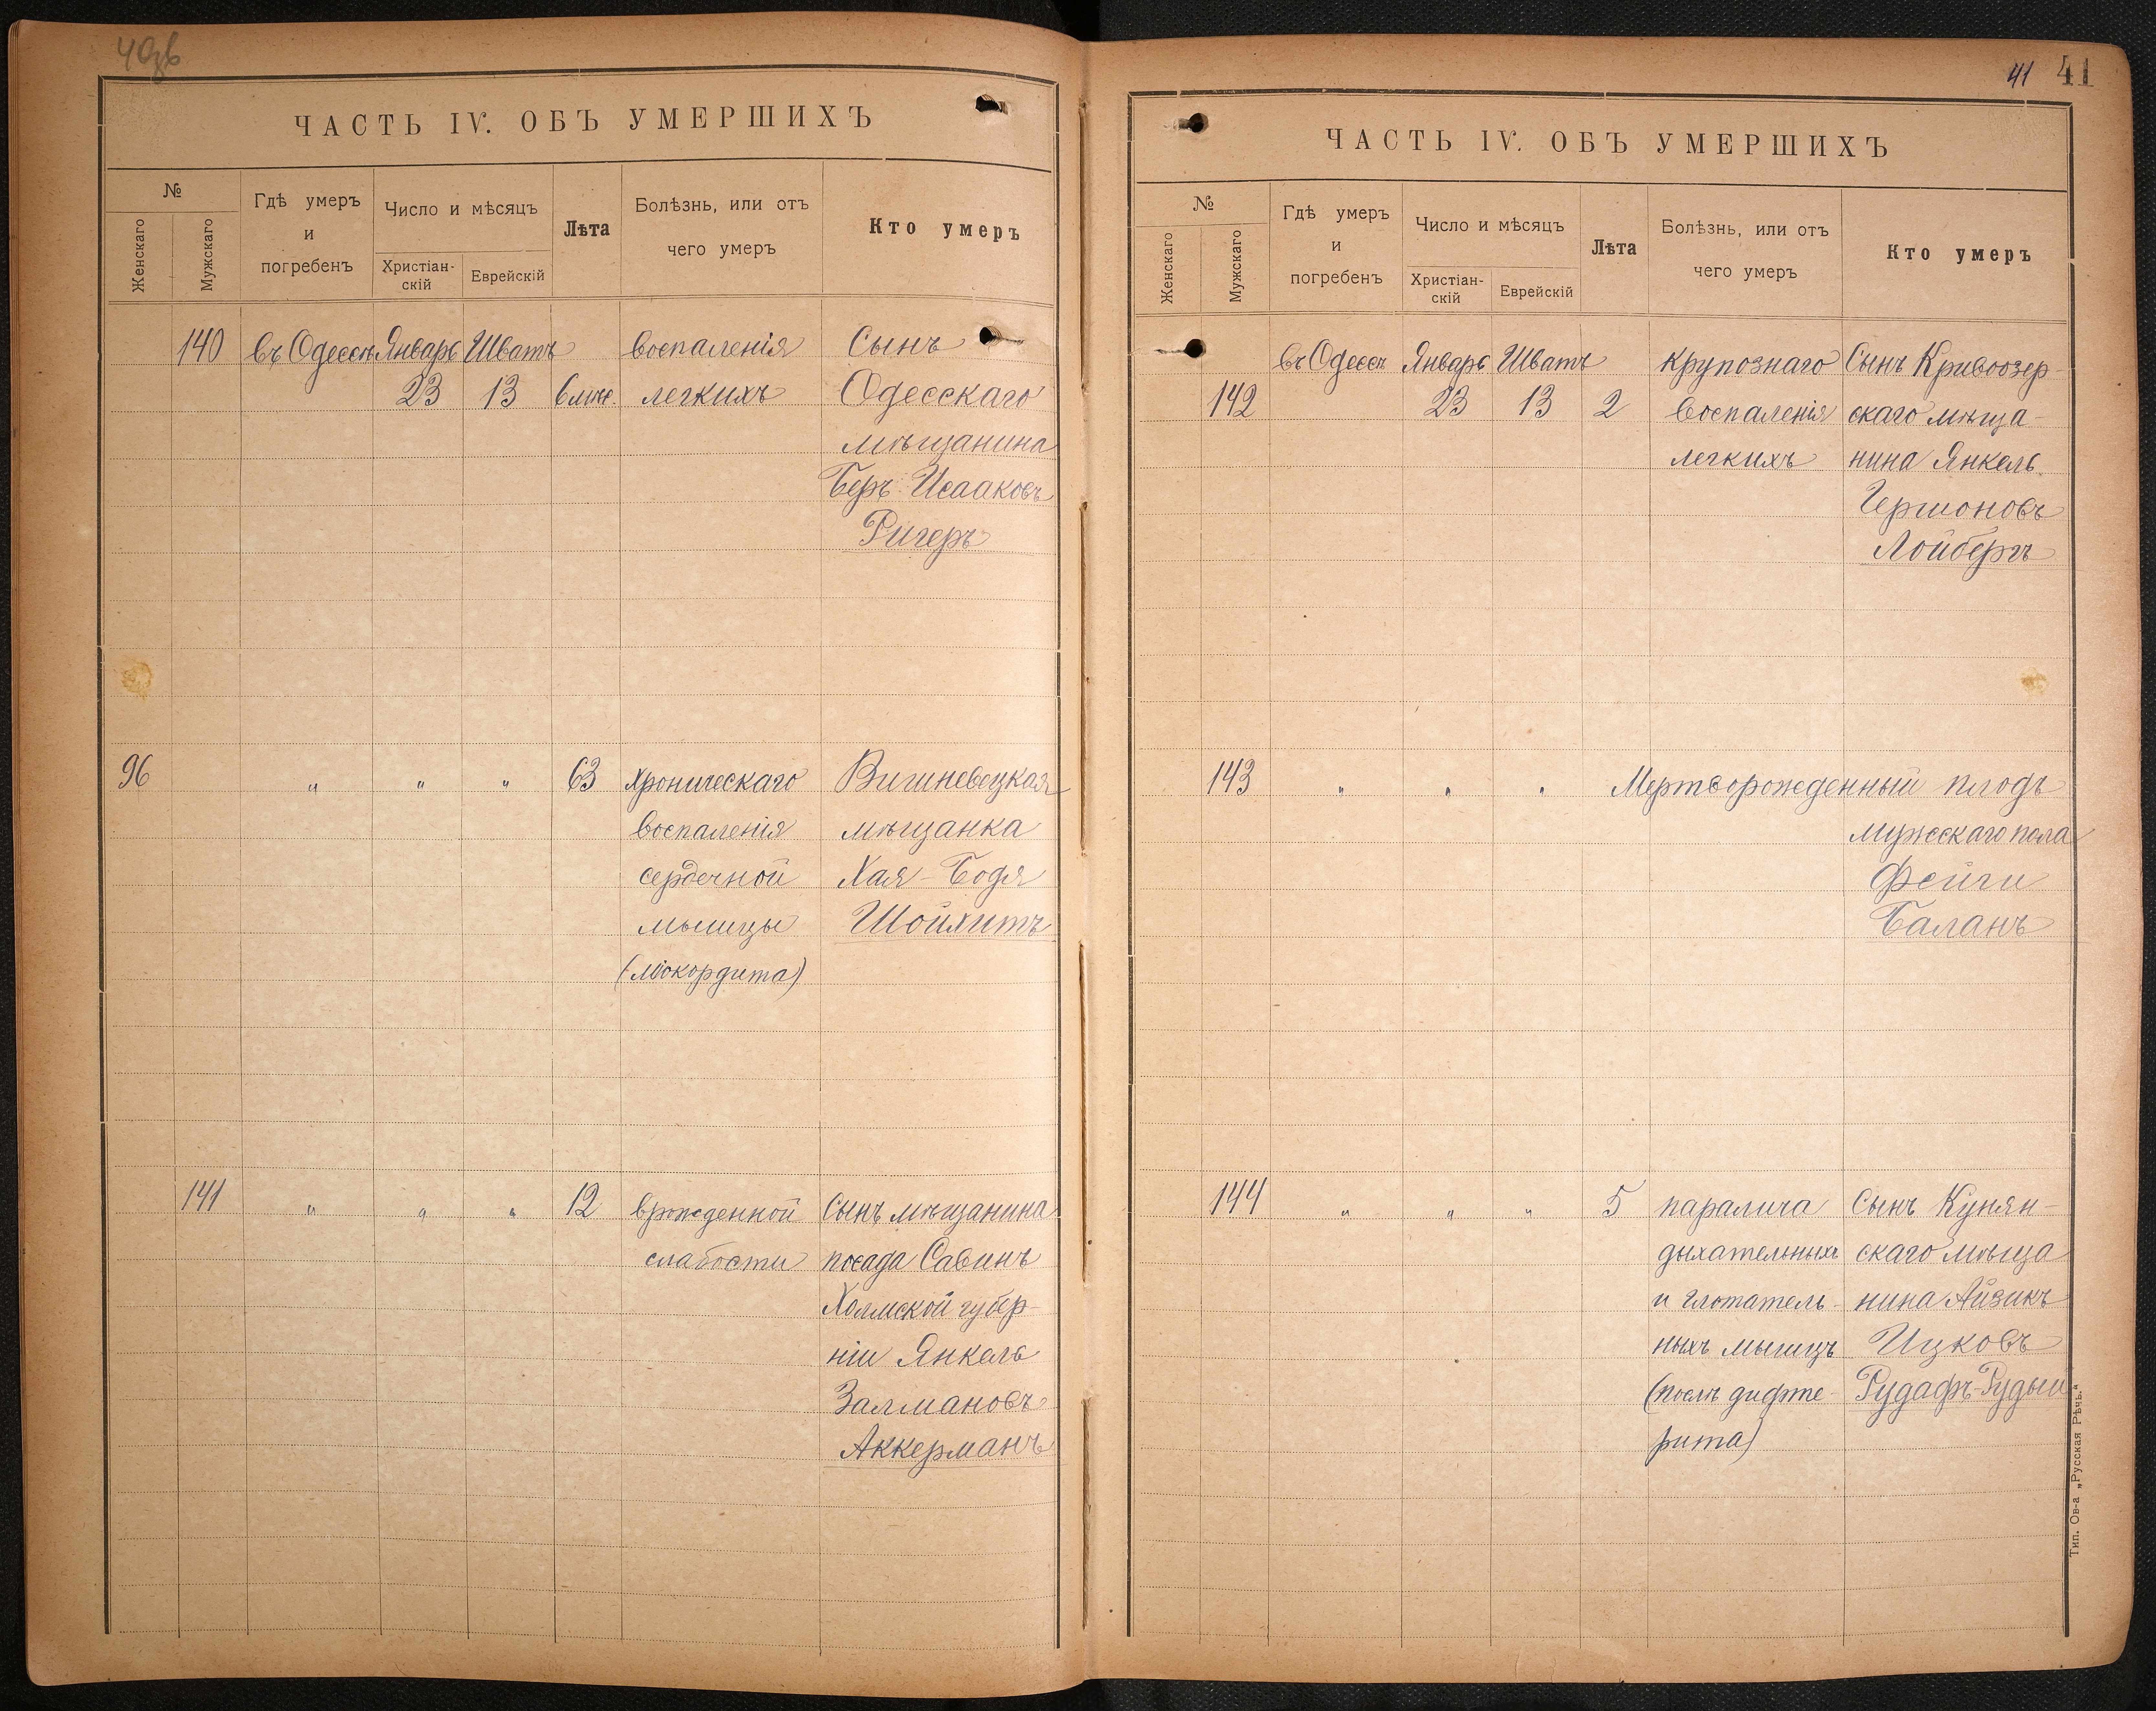 41 41
ЧАСТЬ IV. ОБЪ УМЕРШИХЪ
№
Женскаго
Мужскаго
Гдѣ умеръ
и
погребенъ
Число и мѣсяцъ
Христіан-
скій
Еврейскій
Лѣта
Болѣзнь, или отъ
чего умеръ
Кто умеръ
140 въ Одессѣ Январь Шватъ воспаленія Сынъ
23 13 6 мѣс. легкихъ Одесскаго
мѣщанина
Беръ Исааковъ
Ригеръ
96 " " " 63 хроническаго Вишневецкая
воспаленія мѣщанка
сердечной Хая-Бодя
мышцы Шойхитъ
(міокордита)
141 " " " 12 врожденной Сынъ мѣщанина
слабости посада Савинъ
Холмской губер-
ніи Янкель
Залмановъ
Аккерманъ
ЧАСТЬ IV. ОБЪ УМЕРШИХЪ
№
Женскаго
Мужскаго
Гдѣ умеръ
и
погребенъ
Число и мѣсяцъ
Христіан-
скій
Еврейскій
Лѣта
Болѣзнь, или отъ
чего умеръ
Кто умеръ
въ Одессѣ Январь Шватъ крупознаго Сынъ Кривоозер-
142 23 13 2 воспаленія скаго мѣща-
легкихъ нина Янкель
Гершоновъ
Лойбергъ
143 " " " Мертворожденный плодъ
мужескаго пола
Фейги
Баланъ
144 " " " 5 паралича Сынъ Кунян-
дыхательныхъ скаго мѣща
и глотатель- нина Айзикъ
ныхъ мышцъ Ицковъ
(послѣ дифте- Рудафъ-Рудый
рита)
Тип. Ов-а „Русская Рѣчь."